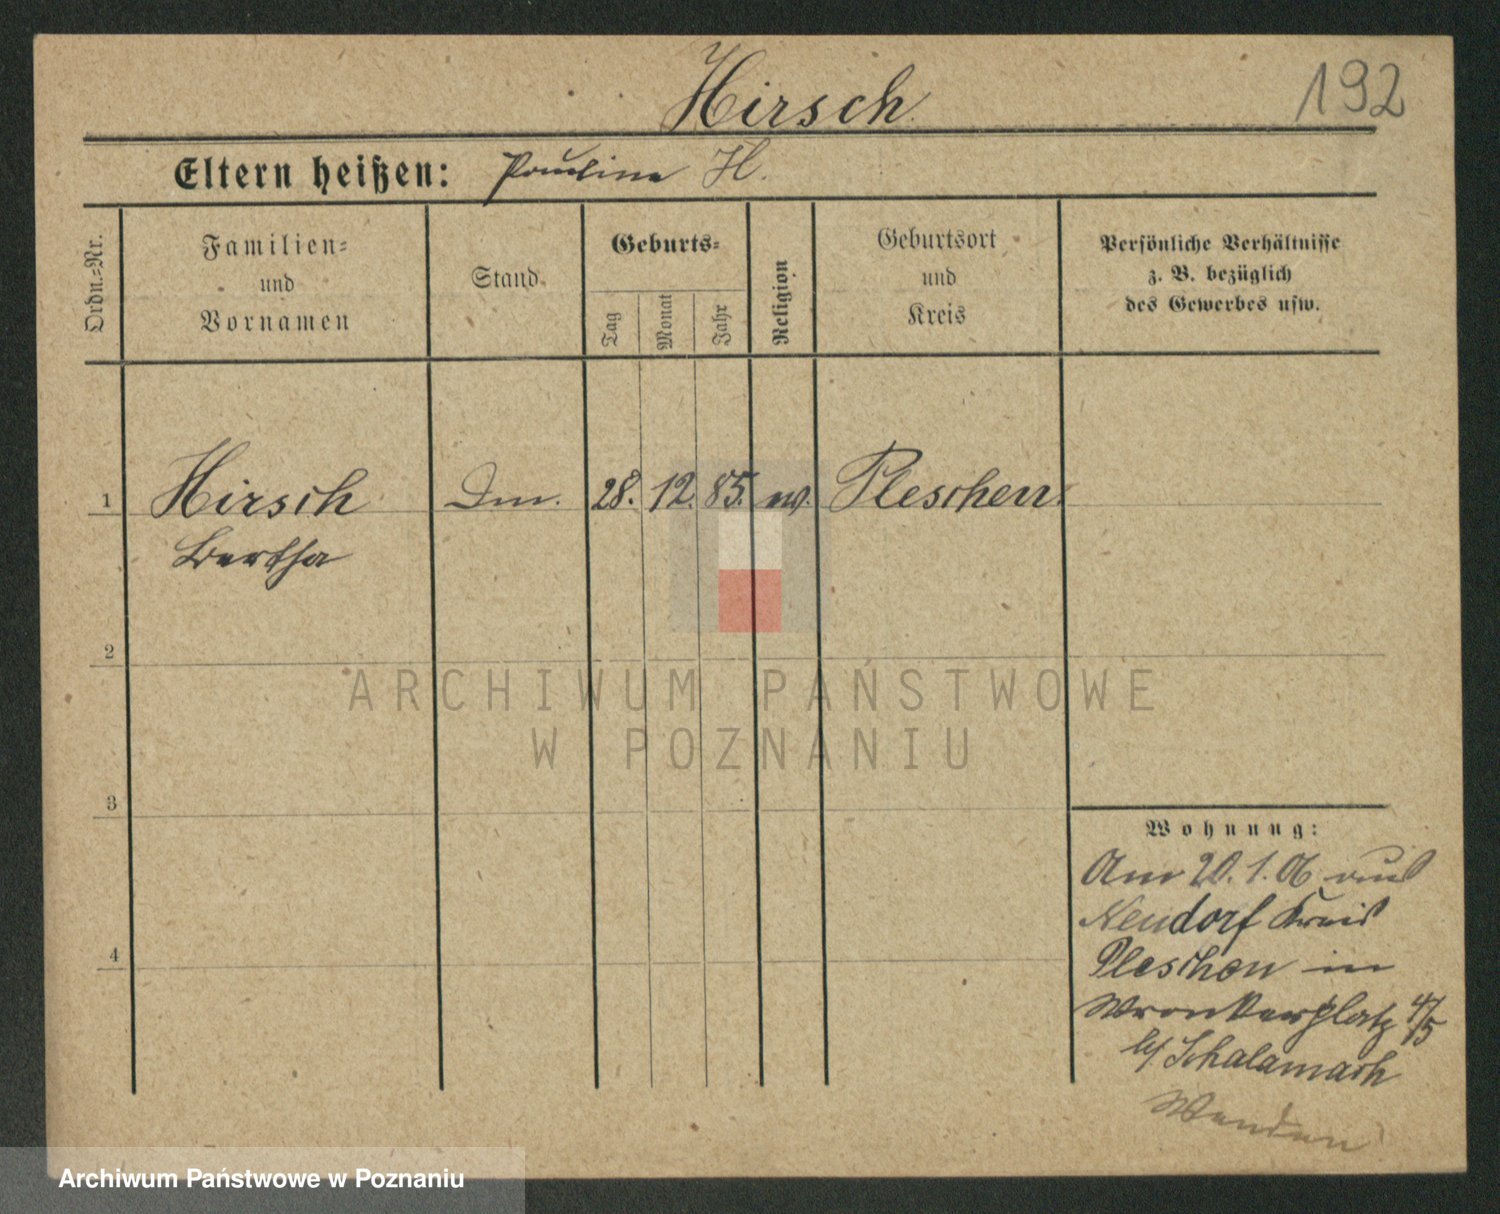 Hirsch
192
Eltern heißen: Pauline H.
Ordn.-Nr.
Familien-
und
Vornamen
Stand
Geburts-
Tag
Monat
Jahr
Religion
Geburtsort
und
Kreis
Persönliche Verhältnisse
z. B. bezüglich
des Gewerbes usw.
1 Hirsch 28. 12. 85. Pleschen
Bertha
2
3
4
Wohnung:
Am 20.1.06 aus
Neudorf Kreis
Pleschen in
Wronkerplatz 4/5
b/ Schalamach
Wenden
ARCHIWUM PAŃSTWOWE
W POZNANIU
Archiwum Państwowe w Poznaniu